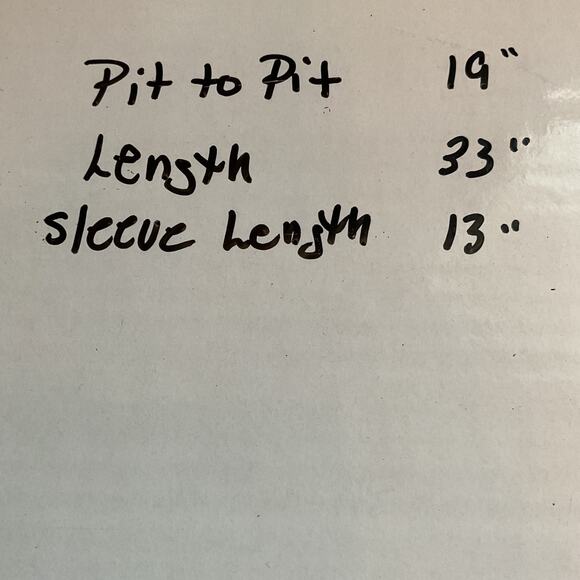 Pit to Pit 19"
Length 33"
Sleeve Length 13"